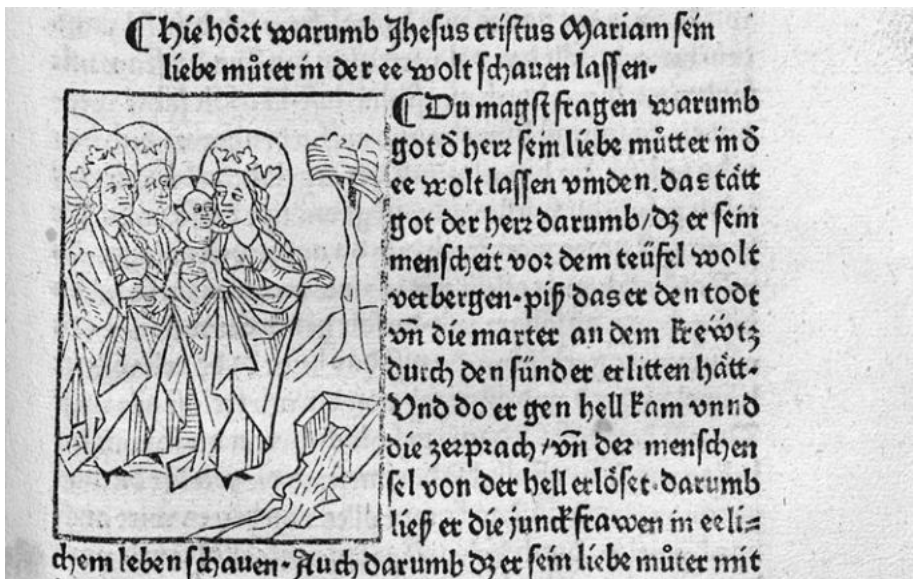 ¶ Hie hört warumb Jhesus cristus Mariam sein
liebe můter in der ee wolt schauen lassen.
¶ Du magst fragen warumb
got d̄ herr sein liebe můtter in d̄
ee wolt lassen vinden. das tätt
got der herr darumb/ dz er sein
menscheit vor dem teüfel wolt
verbergen. piß das er den todt
vn̄ die marter an dem kreẅtz
durch den sünder erlitten hätt.
Vnd do er gen hell kam vnnd
die zerprach/ vn̄ der menschen
sel von der hell erlöset. darumb
ließ er die junckfrawen in eeli=
chem leben schauen. Auch darumb dz er sein liebe můter mit